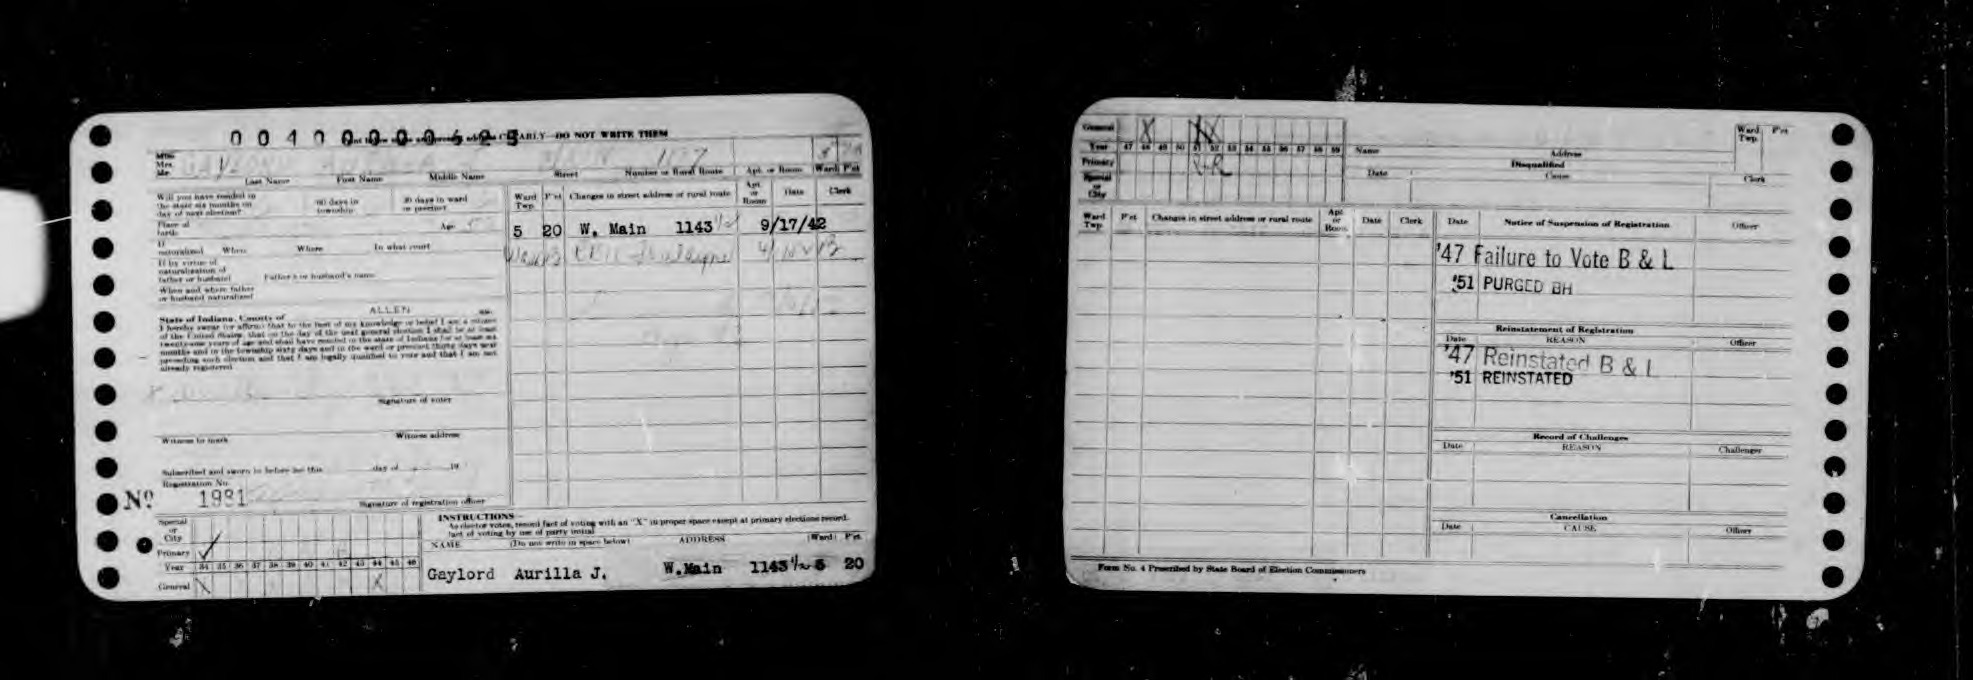 00400000425
CLEARLY—DO NOT WRITE THEM
Miss
Mrs.
Mr.
Last Name First Name Middle Name Street Number or Rural Route Apt. or Room Ward Pct.
Will you have resided in the state six months on day of next election? 60 days in township 30 days in ward or precinct
Place of birth Age
If naturalized When Where In what court
If by virtue of naturalization of father or husband Father's or husband's name
When and where father or husband naturalized
State of Indiana, County of ALLEN ss.
I hereby swear (or affirm) that to the best of my knowledge or belief I am a citizen
of the United States, that on the day of the next general election I shall be at least
twenty-one years of age and shall have resided in the state of Indiana for at least six
months and in the township sixty days and in the ward or precinct thirty days next
preceding such election and that I am legally qualified to vote and that I am not
already registered
Signature of voter
Witness to mark Witness address
Subscribed and sworn to before me this day of 19
Registration No.
No. 1981
Signature of registration officer
Ward Twp. Pct Changes in street address or rural route Apt. or Room Date Clerk
5 20 W. Main 1143 1/2 9/17/42
Special or City
Primary
Year 34 35 36 37 38 39 40 41 42 43 44 45 46
General X X
INSTRUCTIONS—
As elector votes, record fact of voting with an "X" in proper space except at primary elections record.
fact of voting by use of party initial
NAME (Do not write in space below) ADDRESS Ward Pct.
Gaylord Aurilla J. W.Main 1143 1/2 5 20
General X X X
Year 47 48 49 50 51 52 53 54 55 56 57 58 59
Primary R R
Special or City
Name Address
Ward Twp. Pct
Disqualified
Date Cause Clerk
Ward Twp. Pct Changes in street address or rural route Apt. or Room Date Clerk
Date Notice of Suspension of Registration Officer
'47 Failure to Vote B & L
'51 PURGED BH
Reinstatement of Registration
Date REASON Officer
'47 Reinstated B & L
'51 REINSTATED
Record of Challenges
Date REASON Challenger
Cancellation
Date CAUSE Officer
Form No. 4 Prescribed by State Board of Election Commissioners